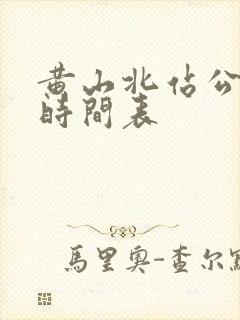 黄山北佔公
時間表
馬里奧-查尔